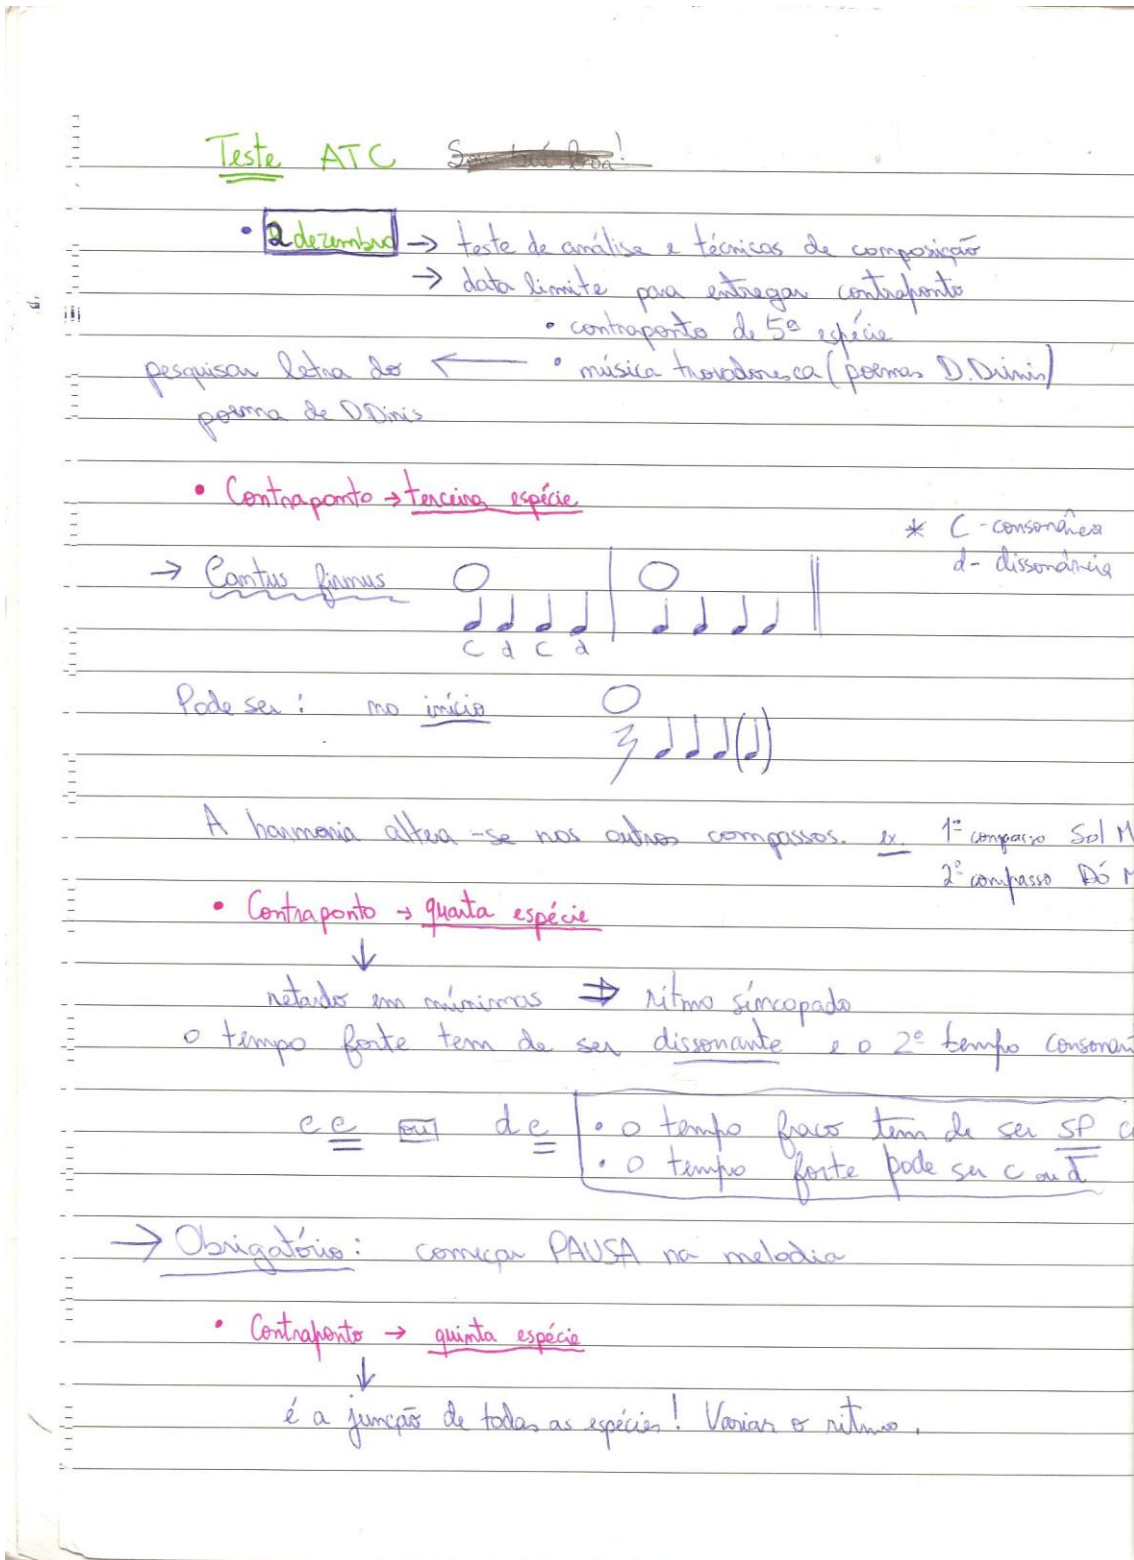 Teste ATC
• 2 dezembro → teste de análise e técnicas de composição
→ data limite para entregar contraponto
• contraponto de 5ª espécie
pesquisar letra do ← • música trovadoresca (poemas D. Dinis)
poema de D Dinis
• Contraponto → terceira espécie
* C - consonância
d - dissonância
→ Cantus firmus
C d C d
Pode ser: no início
A harmonia altera-se nos outros compassos. ex. 1º compasso Sol M
2º compasso Dó M
• Contraponto → quarta espécie
↓
retardo em mínimas ⇒ ritmo síncopado
o tempo forte tem de ser dissonante e o 2º tempo consonan
c c ou d c • o tempo fraco tem de ser SP c
• o tempo forte pode ser c ou d
→ Obrigatório: começar PAUSA na melodia
• Contraponto → quinta espécie
↓
é a junção de todas as espécies! Variar o ritmo.